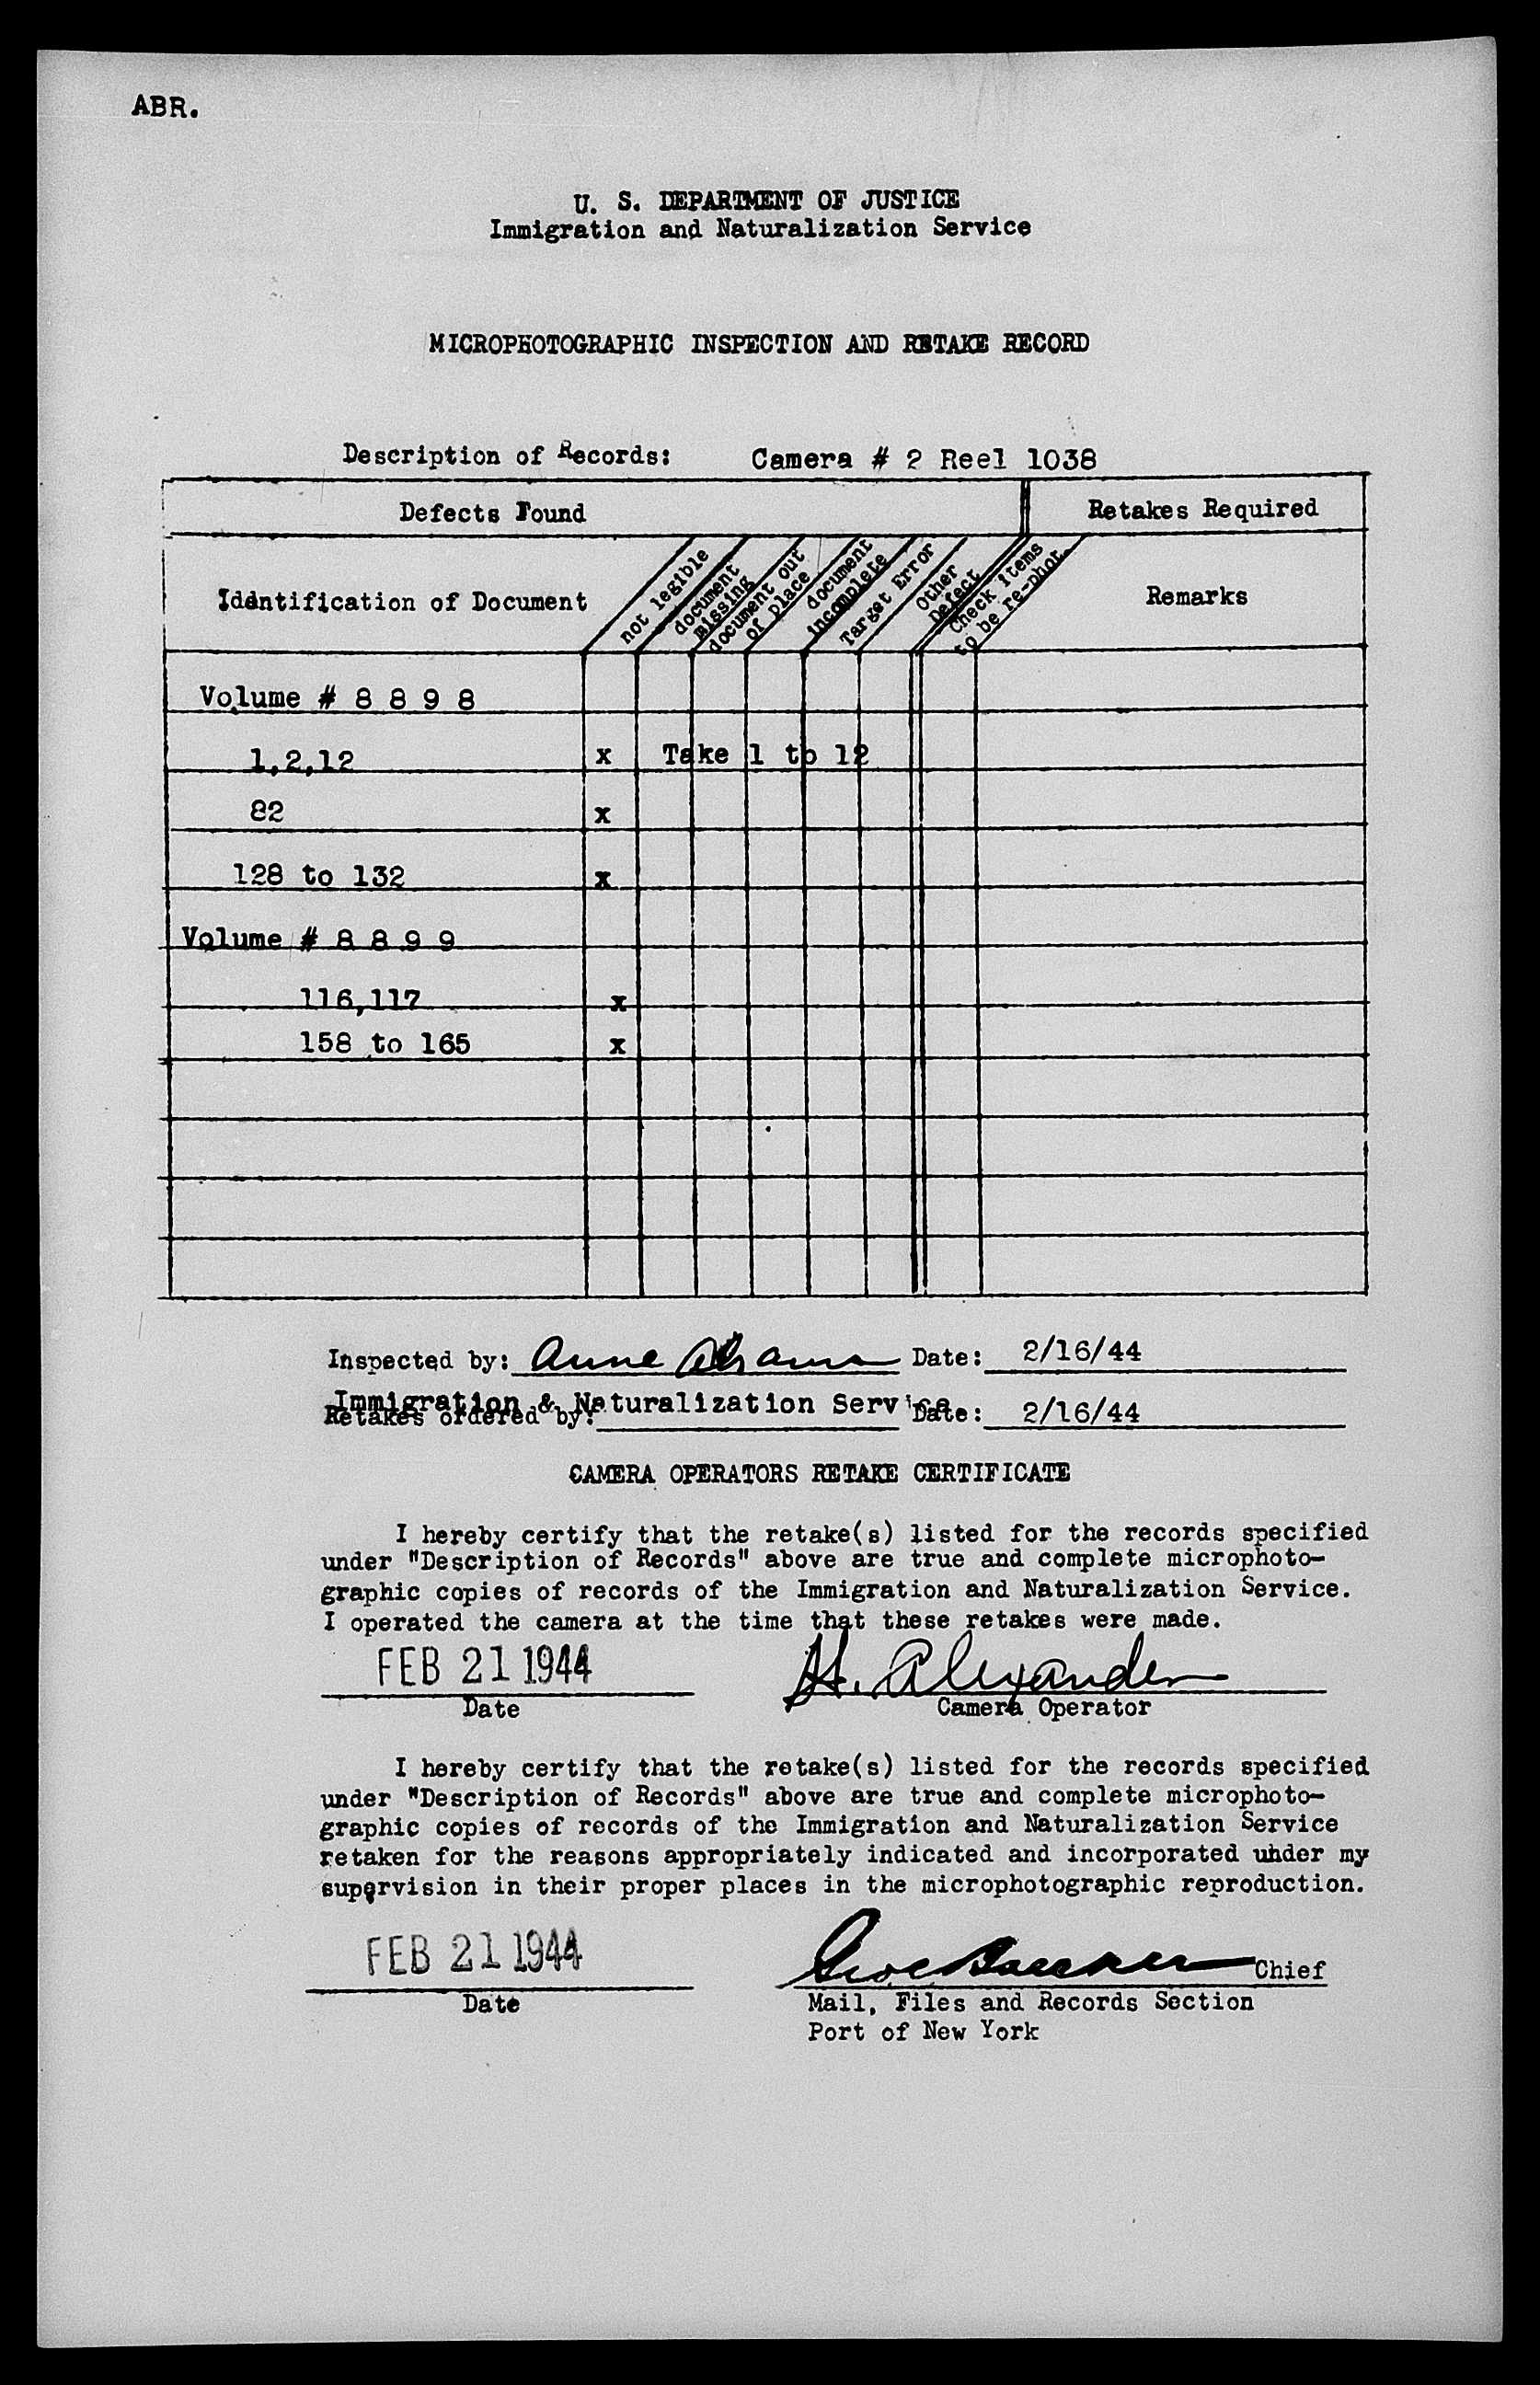 ABR.
U. S. DEPARTMENT OF JUSTICE
Immigration and Naturalization Service
MICROPHOTOGRAPHIC INSPECTION AND RETAKE RECORD
Description of Records: Camera # 2 Reel 1038
Defects Found Retakes Required
Identification of Document
not legible
document
missing
document out
of place
document
incomplete
Target Error
Other
Defect
Check items
to be re-phot.
Remarks
Volume # 8 8 9 8
1,2,12 x Take 1 to 12
82 x
128 to 132 x
Volume # 8 8 9 9
116,117 x
158 to 165 x
Inspected by: Anne Abrams Date: 2/16/44
Immigration & Naturalization Service.
Retakes ordered by: Date: 2/16/44
CAMERA OPERATORS RETAKE CERTIFICATE
I hereby certify that the retake(s) listed for the records specified
under "Description of Records" above are true and complete microphoto-
graphic copies of records of the Immigration and Naturalization Service.
I operated the camera at the time that these retakes were made.
FEB 21 1944 H. Alexander
Date Camera Operator
I hereby certify that the retake(s) listed for the records specified
under "Description of Records" above are true and complete microphoto-
graphic copies of records of the Immigration and Naturalization Service
retaken for the reasons appropriately indicated and incorporated under my
supervision in their proper places in the microphotographic reproduction.
FEB 21 1944 Chief
Date Mail, Files and Records Section
Port of New York